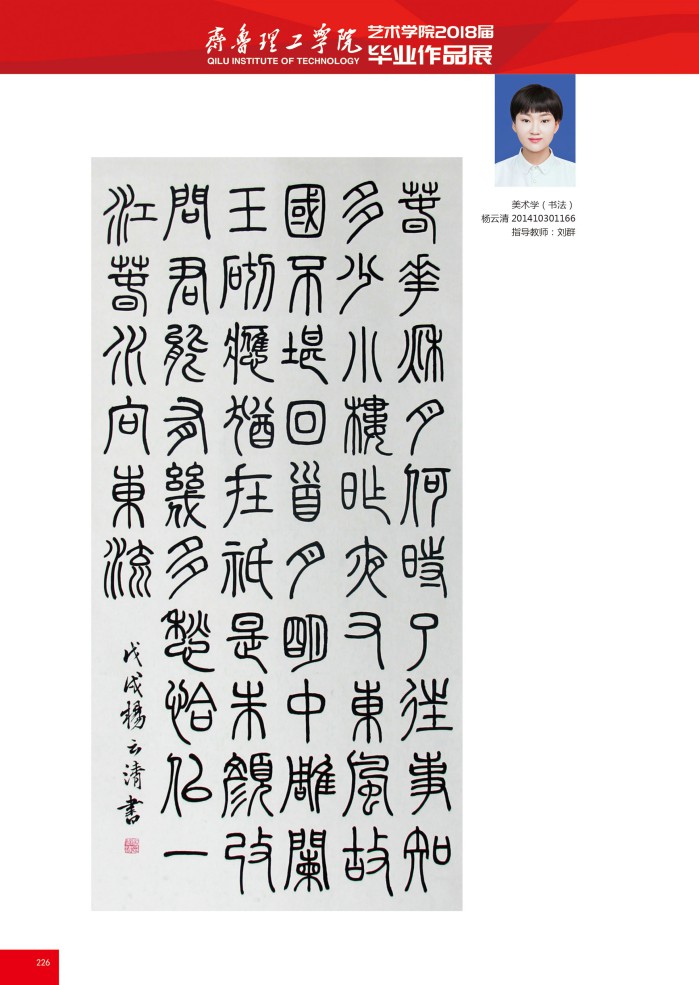 齊魯理工學院
QILU INSTITUTE OF TECHNOLOGY
艺术学院2018届
毕业作品展
美术学（书法）
杨云清 201410301166
指导教师：刘群
春華秌月何時了往事知
多少小樓昨夜又東風故
國不堪回首月明中雕闌
玉砌應猶在祇是朱顏改
問君能有幾多愁恰佀一
江春水向東流
戊戌楊云清書
226